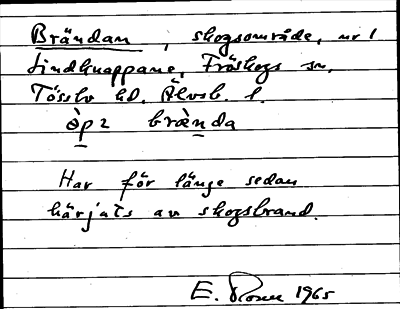 Brändan, skogsområde, nr 1
Lindknappane, Fröskogs sn,
Tössbo hd. Älvsb. l.
àp2 bræ̀nda
Har för länge sedan
härjats av skogsbrand.
E. Rosén 1965